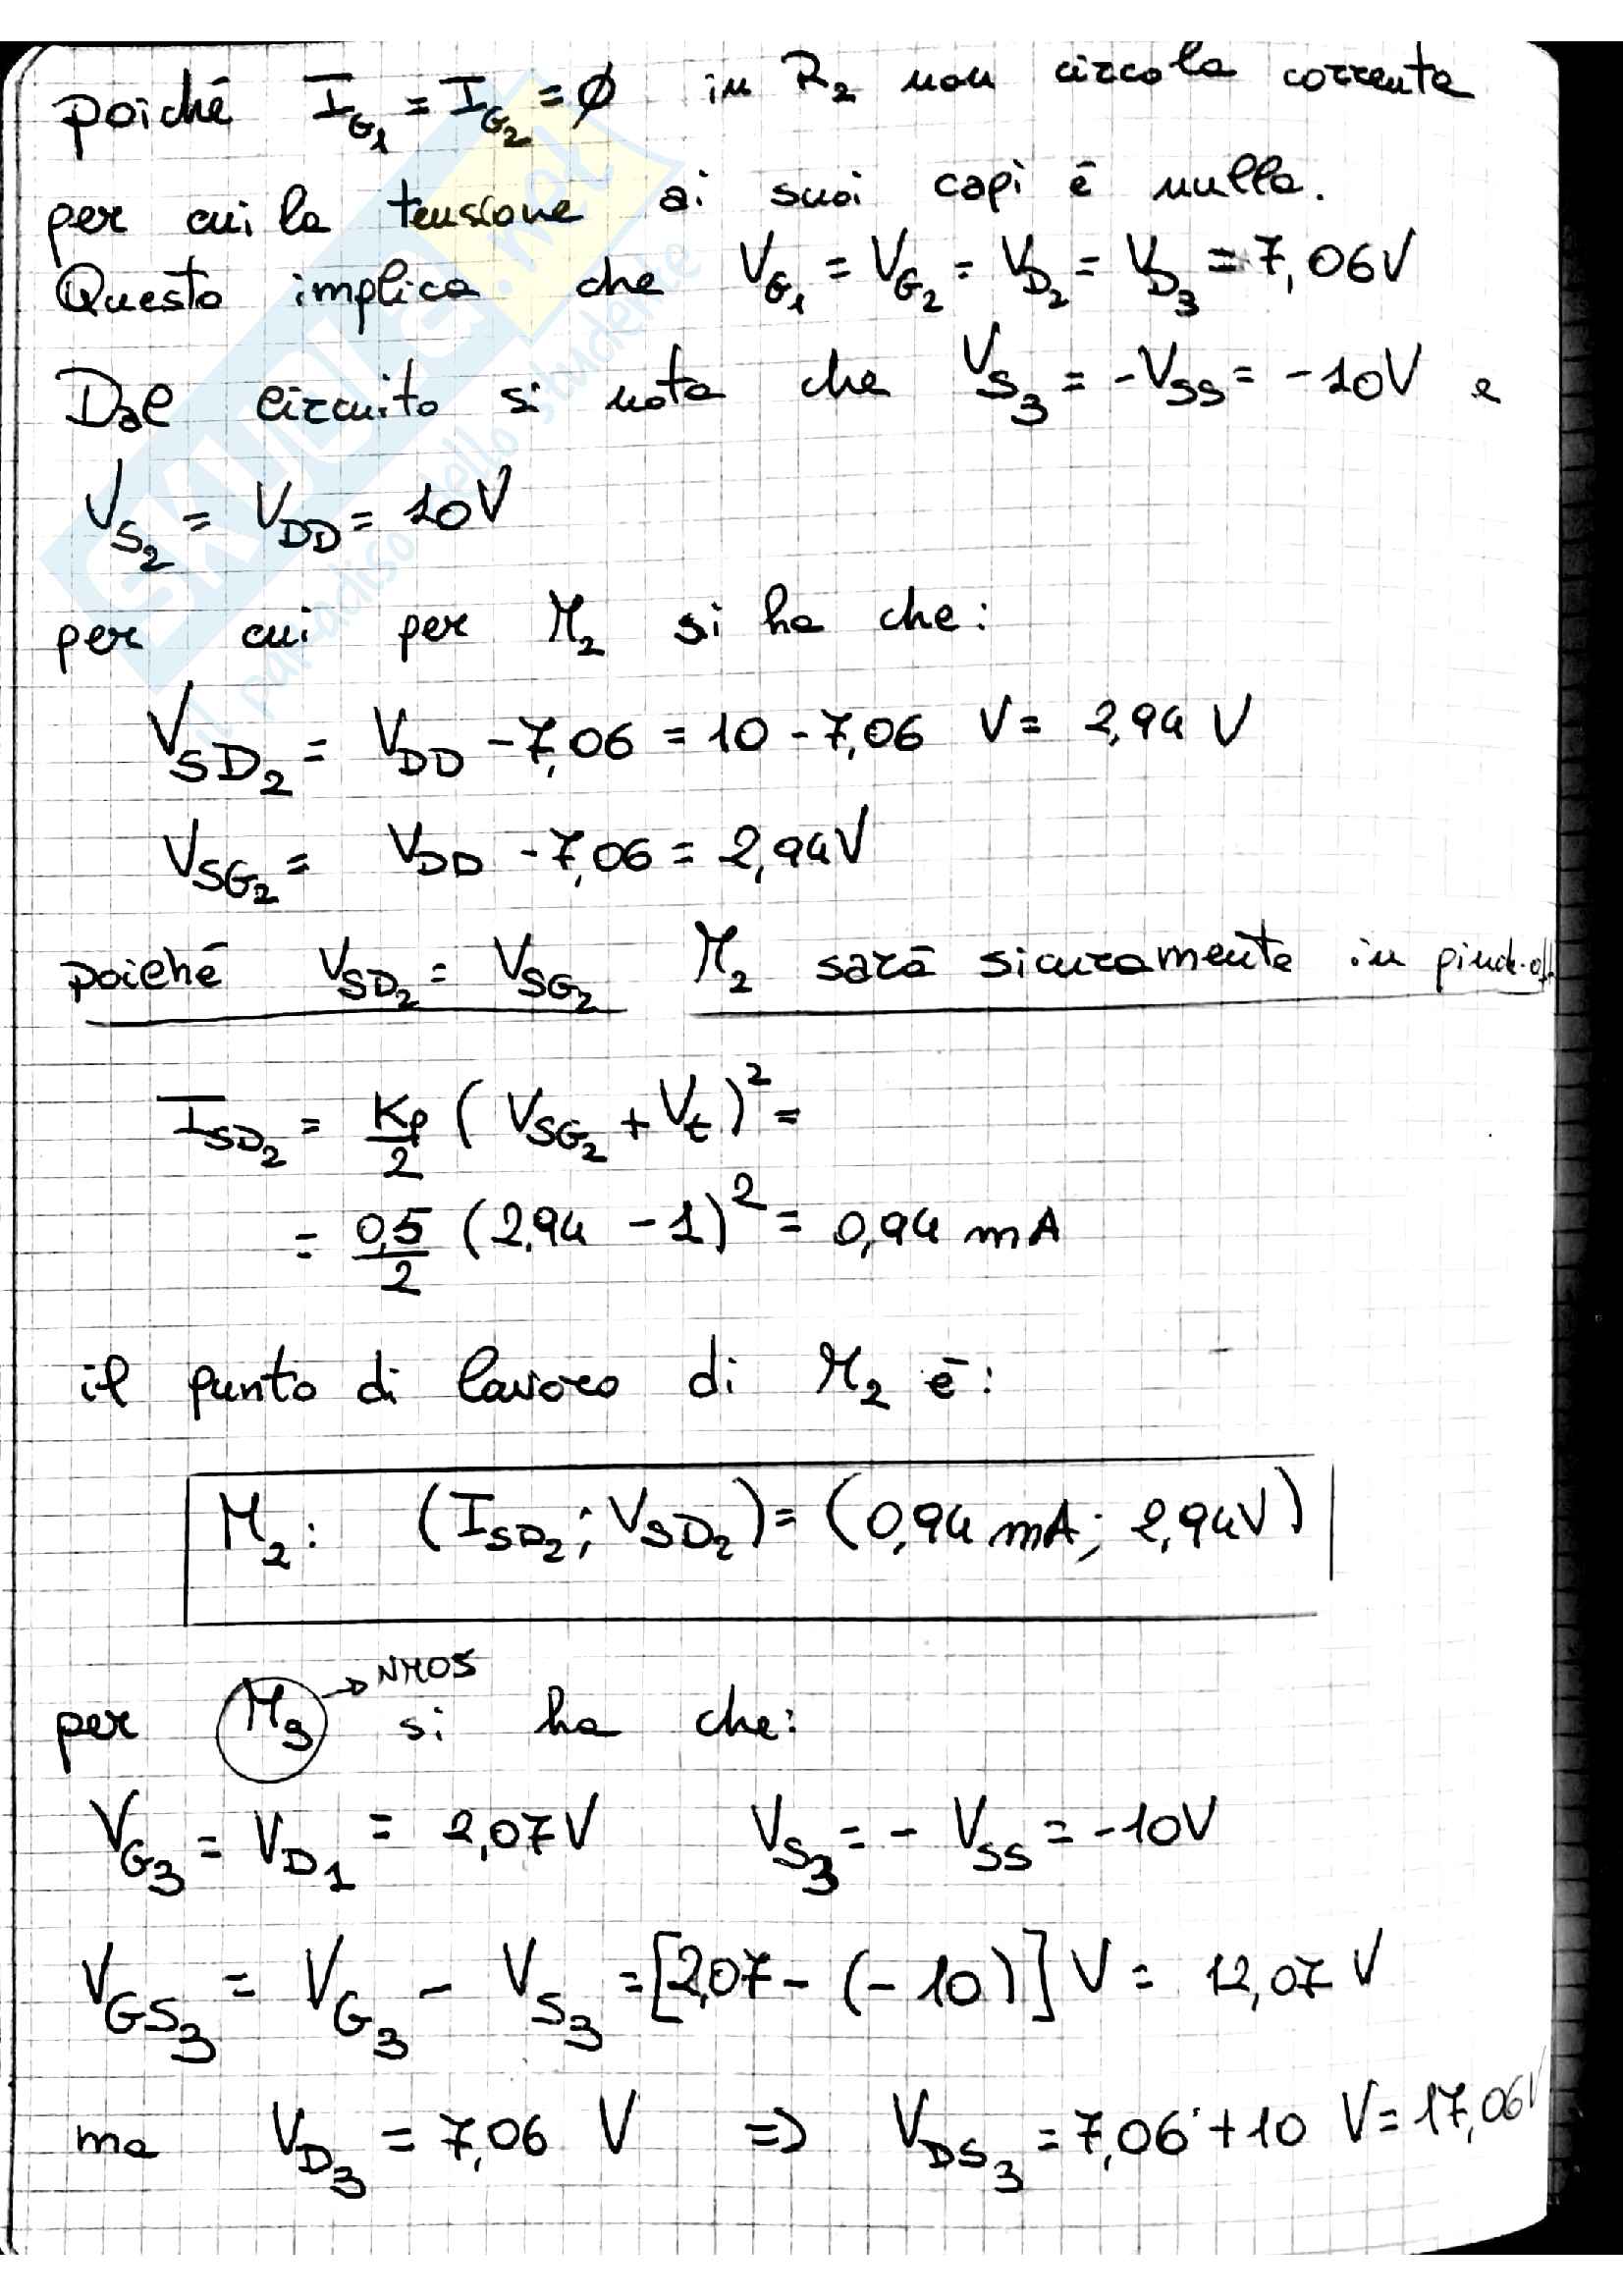 poiché I_G1 = I_G2 = Ø in R2 non circola corrente
per cui la tensione ai suoi capi è nulla.
Questo implica che V_G1 = V_G2 = V_D2 = V_D3 = 7,06V
Dal circuito si nota che V_S3 = -V_SS = -10V e
V_S2 = V_DD = 10V
per cui per M2 si ha che:
V_SD2 = V_DD - 7,06 = 10 - 7,06 V = 2,94 V
V_SG2 = V_DD - 7,06 = 2,94V
poiché V_SD2 = V_SG2 M2 sarà sicuramente in pinch-off
I_SD2 = Kp/2 (V_SG2 + Vt)² =
= 0,5/2 (2,94 - 1)² = 0,94 mA
il punto di lavoro di M2 è:
M2: (I_SD2; V_SD2) = (0,94 mA; 2,94V)
per M3 → NMOS si ha che:
V_G3 = V_D1 = 2,07V V_S3 = - V_SS = -10V
V_GS3 = V_G3 - V_S3 = [2,07 - (-10)] V = 12,07 V
ma V_D3 = 7,06 V => V_DS3 = 7,06 + 10 V = 17,06V
SKUOLA.net
il paradiso dello studente